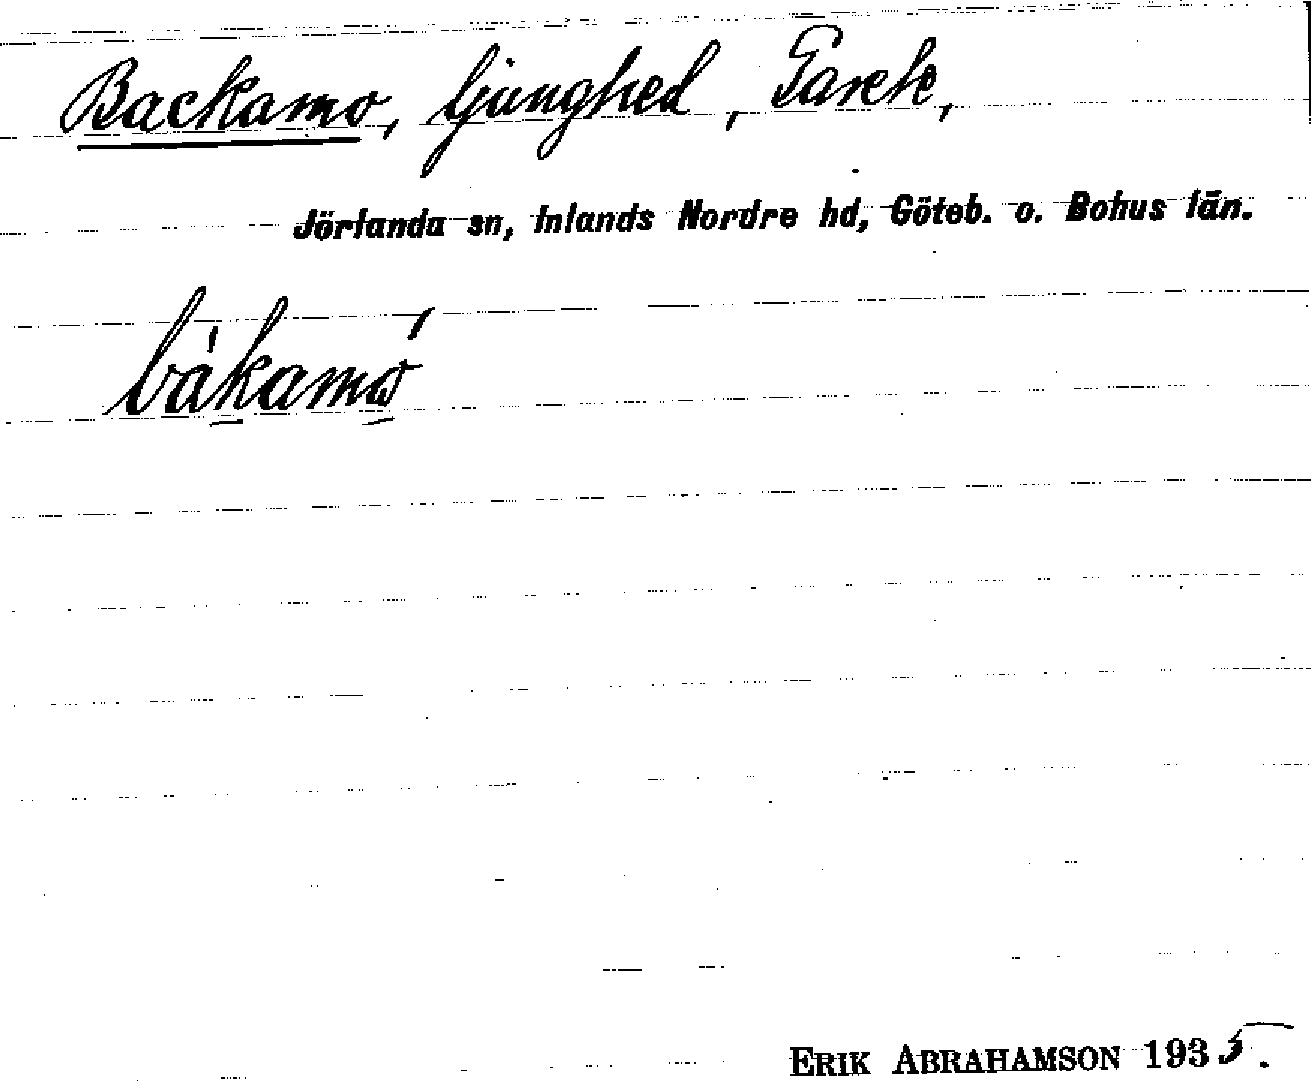 Backamo, ljunghed,
Jörlanda sn, Inlands Nordre hd, Göteb. o. Bohus län.
bàkamó
ERIK ABRAHAMSON 1935.